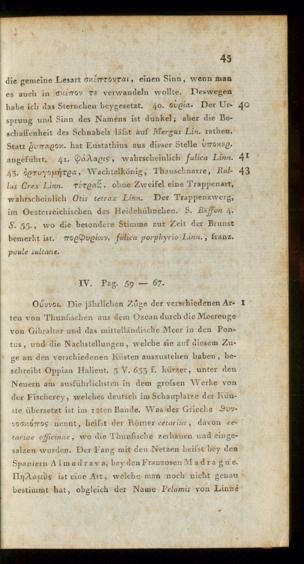 45
die gemeine Lesart σκέπτονται, einen Sinn, wenn man
es auch in σκέπον τε verwandeln wollte. Deswegen
habe ich das Sternchen beygesetzt. 40. οὐρία. Der Ur- 40
sprung und Sinn des Namens ist dunkel; aber die Be-
schaffenheit des Schnabels läſst auf Mergus Lin. rathen.
Statt ῥυπαροκ. hat Eustathius aus dieser Stelle ὑποκρ.
angeführt. 41. φάλαρις, wahrscheinlich fulica Linn. 41
43. ὀρτυγομήτρα, Wachtelkönig, Thauschnarre, Ral- 43
lus Crex Linn. τέτραξ. ohne Zweifel eine Trappenart,
wahrscheinlich Otis tetrax Linn. Der Trappenzwerg,
im Oesterreichischen das Heidehühnchen. S. Buffon 4.
S. 55., wo die besondere Stimme zur Zeit der Brunst
bemerkt ist. πορφυρίων, fulica porphyrio Linn., franz.
poule sultane.
IV. Pag. 59 — 67.
Θύννοι. Die jährlichen Züge der verschiedenen Ar- 1
ten von Thunfischen aus dem Ozean durch die Meerenge
von Gibraltar und das mittelländische Meer in den Pon-
tus, und die Nachstellungen, welche sie auf diesem Zu-
ge an den verschiedenen Küsten auszustehen haben, be-
schreibt Oppian Halieut. 3 V. 633 f. kürzer, unter den
Neuern am ausführlichsten in dem grossen Werke von
der Fischerey, welches deutsch im Schauplatze der Kün-
ste übersetzt ist im 12ten Bande. Was der Grieche Θυν-
νοσκόπος nennt, heiſst der Römer cetarius, davon ce-
tariae officinae, wo die Thunfische zerhauen und einge-
salzen wurden. Der Fang mit den Netzen heiſst bey den
Spaniern Almadrava, bey den Franzosen Madrague.
Πηλαμὺς ist eine Art, welche man noch nicht genau
bestimmt hat, obgleich der Name Pelamis von Linné